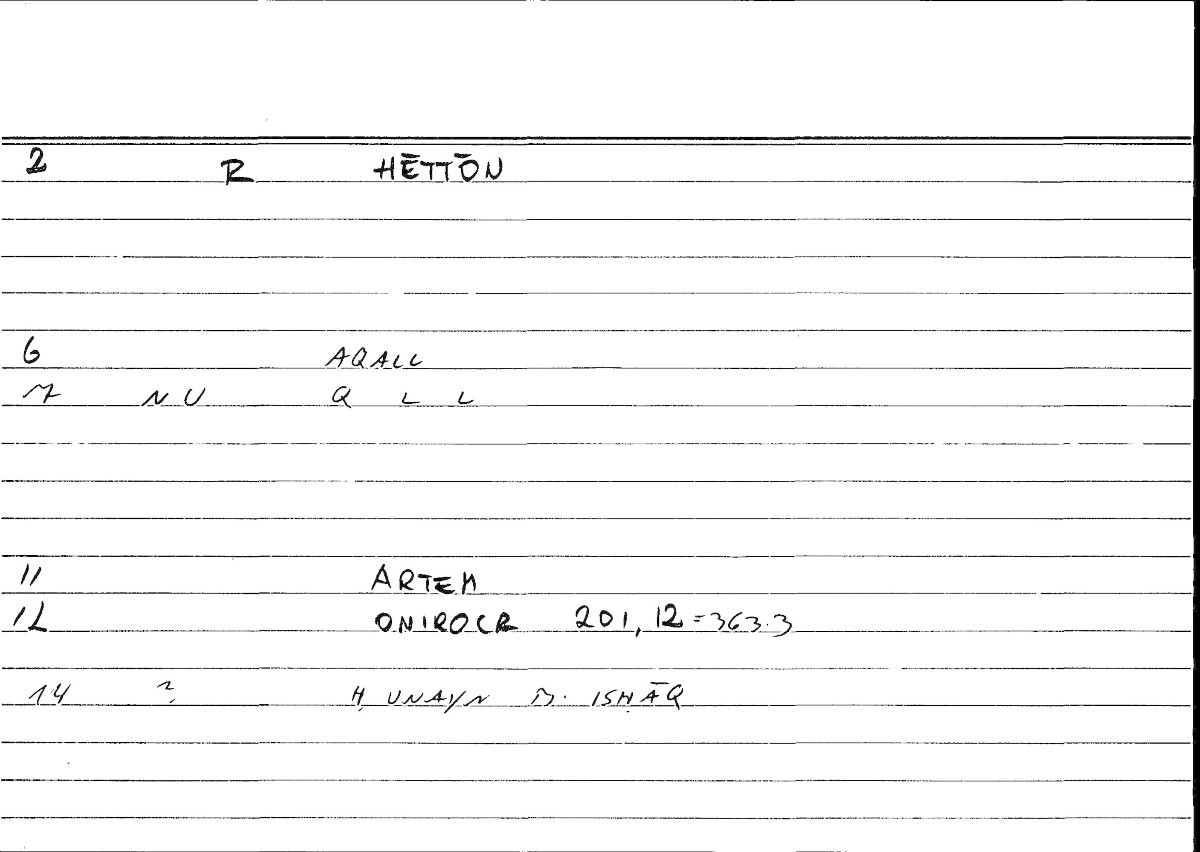 2 R HĒTTŌN
6 AQALL
7 NU Q L L
11 ARTEM
12 ONIROCR 201,12=363.3
14 ? Ḥ UNAYN B. ISḤĀQ